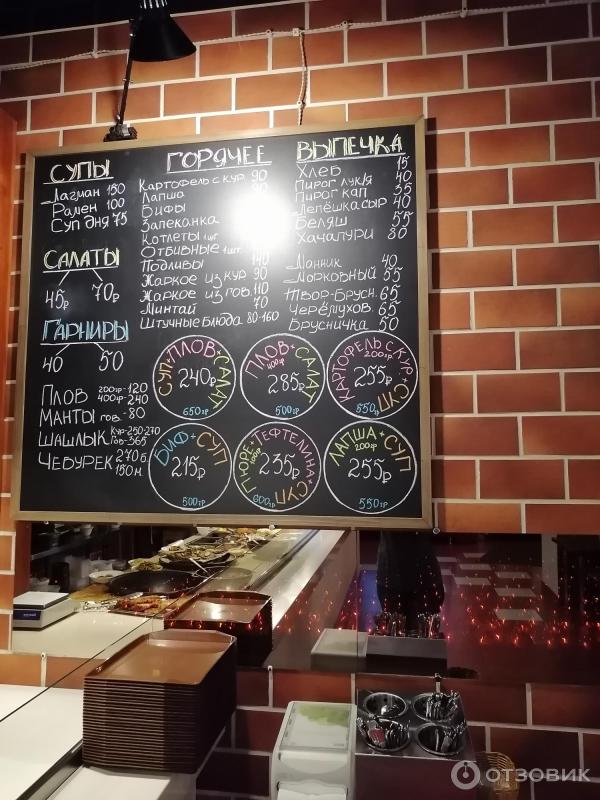 СУПЫ
Лагман 150
Рамен 100
Суп дня 75
САЛАТЫ
45р 70р
ГАРНИРЫ
40 50
ПЛОВ 200гр-120
400гр-240
МАНТЫ гов.-80
ШАШЛЫК кур-250-270
гов-365
ЧЕБУРЕК 270 б.
150 м.
ГОРЯЧЕЕ
Картофель с кур. 90
Лапша 90
Бифы
Запеканка
Котлеты 1шт
Отбивные 1шт.
Подливы 140
Жаркое из кур. 90
Жаркое из гов. 110
Минтай 70
Штучные блюда 80-160
ВЫПЕЧКА
Хлеб 15
Пирог лук/я 40
Пирог кап 35
Лепёшка сыр 40
Беляш 55
Хачапури 80
Манник 40
Морковный 55
Твор-Брусн. 65
Черёмухов. 65
Брусничка 50
СУП+ПЛОВ+САЛАТ
240р
650гр
ПЛОВ+САЛАТ
400гр
285р
500гр
КАРТОФЕЛЬ С КУР.+СУП
200гр
255р
550гр
БИФ+СУП
215р
500гр
ПЮРЕ+ТЕФТЕЛИНА+СУП
235р
600гр
ЛАПША+СУП
200гр
255р
550гр
ОТЗОВИК